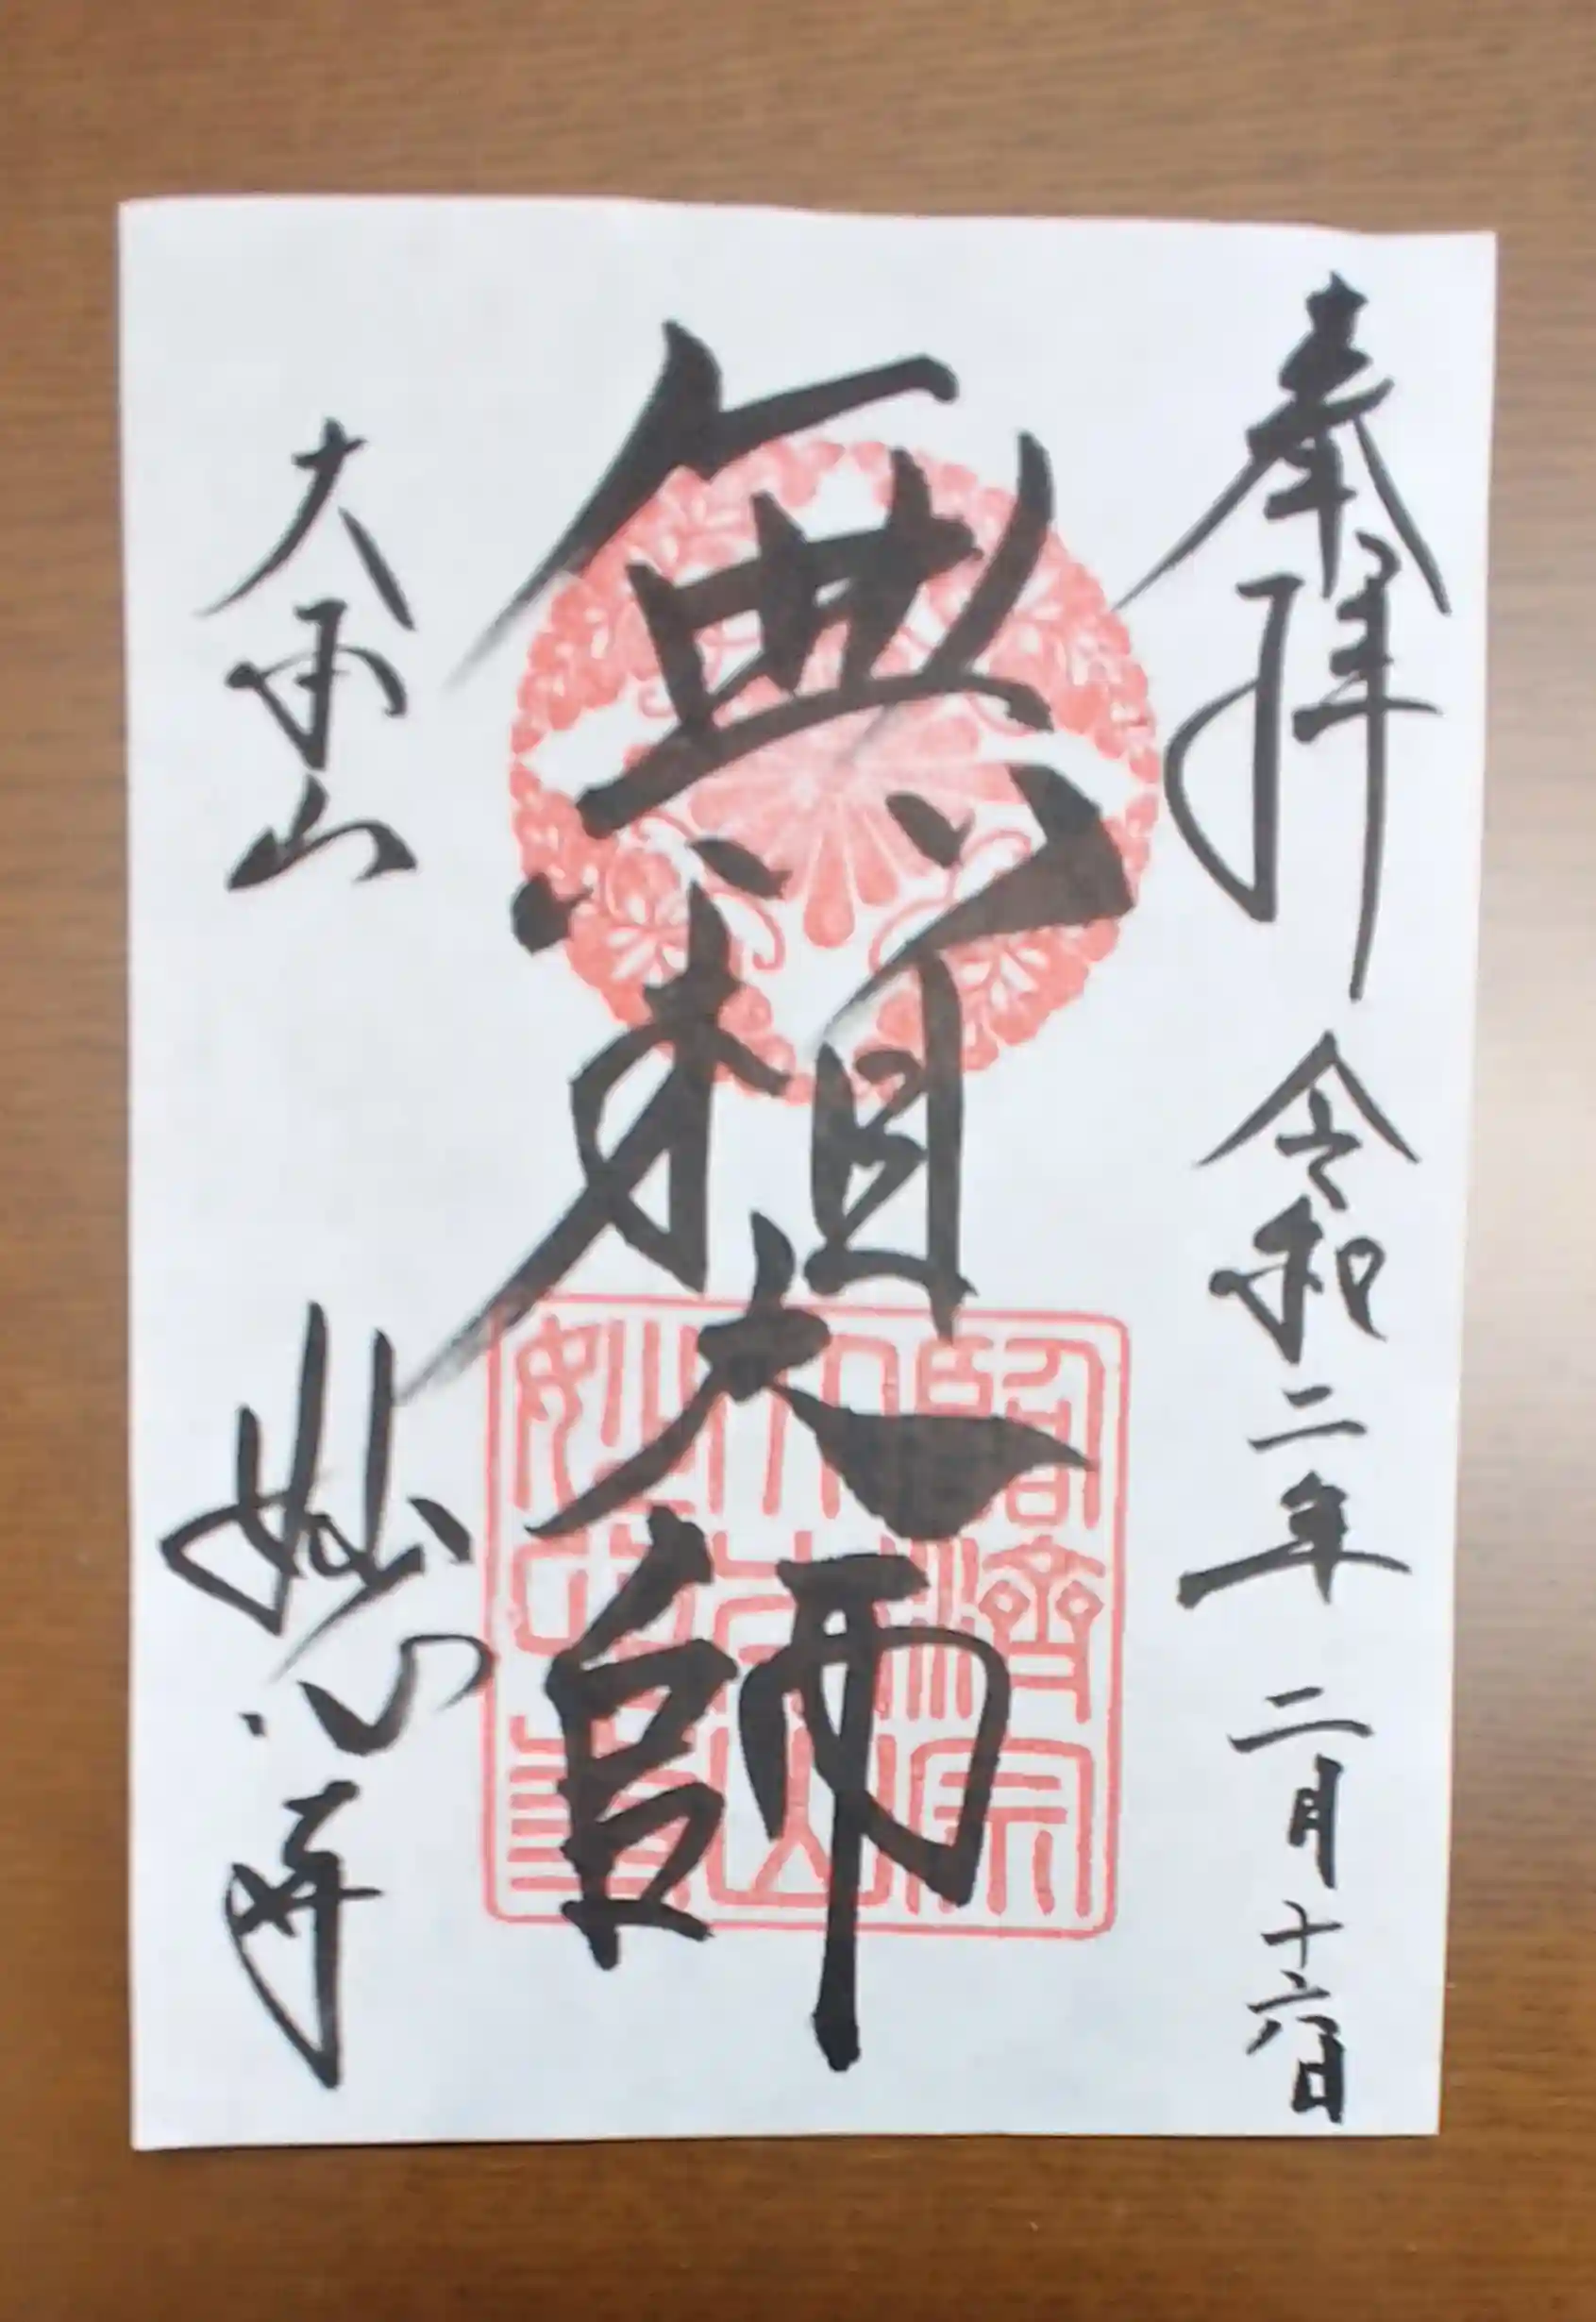 奉拝 令和二年 二月十六日
無相大師
大本山 妙心寺
臨濟宗
大本山
妙心寺